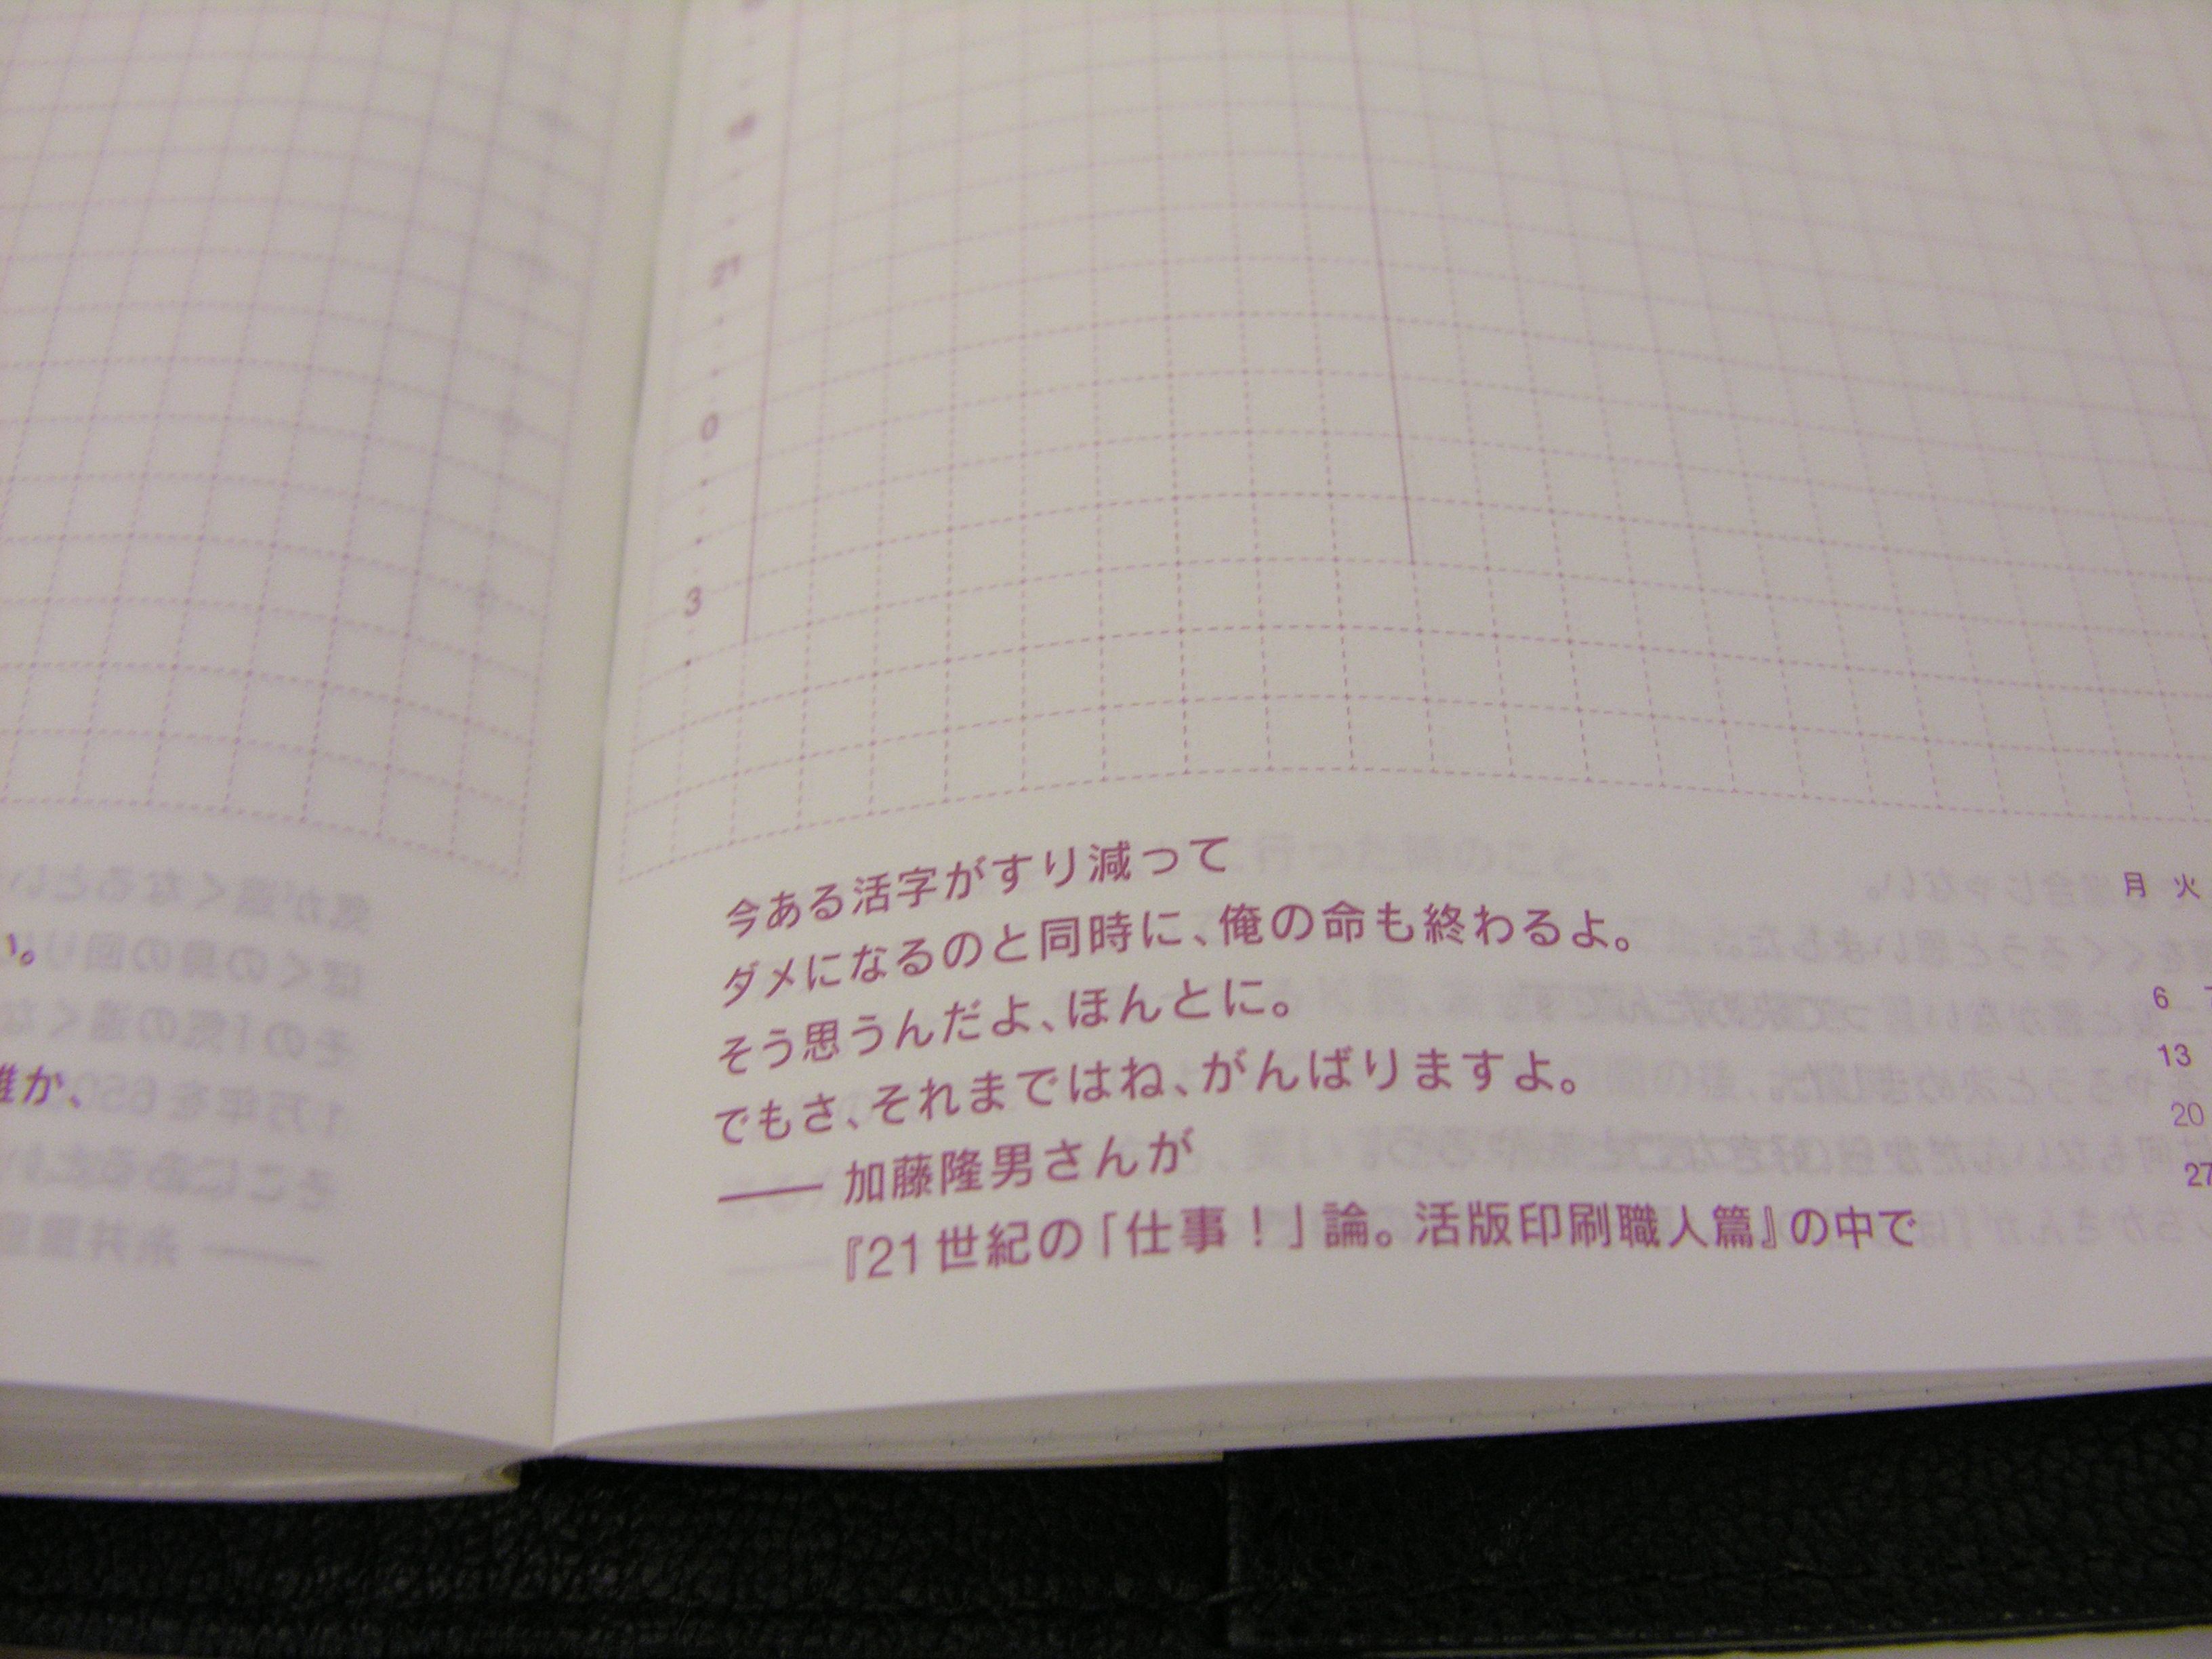 21
0
3
い。
誰か、
今ある活字がすり減って
ダメになるのと同時に、俺の命も終わるよ。
そう思うんだよ、ほんとに。
でもさ、それまではね、がんばりますよ。
―― 加藤隆男さんが
『21世紀の「仕事！」論。活版印刷職人篇』の中で
月 火
6
13
20
27